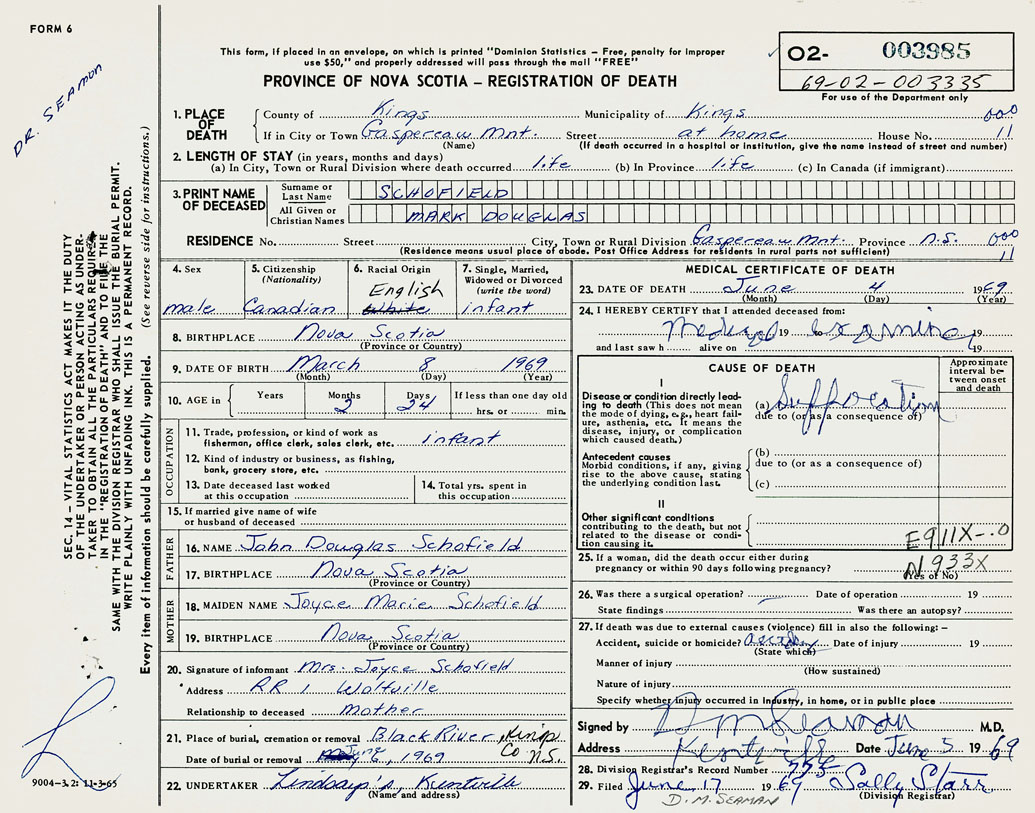 FORM 6
DR. SEAMAN
This form, if placed in an envelope, on which is printed "Dominion Statistics – Free, penalty for improper
use $50," and properly addressed will pass through the mail "FREE"
PROVINCE OF NOVA SCOTIA – REGISTRATION OF DEATH
02- 003985
69-02-003335
For use of the Department only
1. PLACE OF DEATH
County of Kings Municipality of Kings 000
If in City or Town Gaspereaw Mnt. Street at home House No. 11
(Name) (If death occurred in a hospital or institution, give the name instead of street and number)
2. LENGTH OF STAY (in years, months and days)
(a) In City, Town or Rural Division where death occurred life (b) In Province life (c) In Canada (if immigrant)
3. PRINT NAME OF DECEASED
Surname or Last Name SCHOFIELD
All Given or Christian Names MARK DOUGLAS
RESIDENCE No. Street City, Town or Rural Division Gaspereaw Mnt. Province N.S. 000
(Residence means usual place of abode. Post Office Address for residents in rural parts not sufficient) 11
4. Sex male
5. Citizenship (Nationality) Canadian
6. Racial Origin English White
7. Single, Married, Widowed or Divorced (write the word) infant
8. BIRTHPLACE Nova Scotia
(Province or Country)
9. DATE OF BIRTH March 8 1969
(Month) (Day) (Year)
10. AGE in Years Months 2 Days 24 If less than one day old
hrs. or min.
OCCUPATION
11. Trade, profession, or kind of work as
fisherman, office clerk, sales clerk, etc. infant
12. Kind of industry or business, as fishing,
bank, grocery store, etc.
13. Date deceased last worked
at this occupation
14. Total yrs. spent in
this occupation
15. If married give name of wife
or husband of deceased
FATHER
16. NAME John Douglas Schofield
17. BIRTHPLACE Nova Scotia
(Province or Country)
MOTHER
18. MAIDEN NAME Joyce Marie Schofield
19. BIRTHPLACE Nova Scotia
(Province or Country)
20. Signature of informant Mrs. Joyce Schofield
Address RR 1 Wolfville
Relationship to deceased mother
21. Place of burial, cremation or removal Black River, Kings Co N.S.
Date of burial or removal June 6, 1969
22. UNDERTAKER Lindsay's, Kentville
(Name and address)
MEDICAL CERTIFICATE OF DEATH
23. DATE OF DEATH June 4 1969
(Month) (Day) (Year)
24. I HEREBY CERTIFY that I attended deceased from:
Medical 19 to Examiner 19
and last saw h alive on 19
CAUSE OF DEATH
Approximate interval between onset and death
I
Disease or condition directly leading
to death (This does not mean
the mode of dying, e.g., heart failure,
asthenia, etc. It means the
disease, injury, or complication
which caused death.)
(a) Suffocation
due to (or as a consequence of)
Antecedent causes
Morbid conditions, if any, giving
rise to the above cause, stating
the underlying condition last.
(b)
due to (or as a consequence of)
(c)
II
Other significant conditions
contributing to the death, but not
related to the disease or condition
causing it.
E911X-.0
25. If a woman, did the death occur either during
pregnancy or within 90 days following pregnancy?
(Yes or No)
N933X
26. Was there a surgical operation? Date of operation 19
State findings Was there an autopsy?
27. If death was due to external causes (violence) fill in also the following: –
Accident, suicide or homicide? Date of injury 19
(State which)
Manner of injury
(How sustained)
Nature of injury
Specify whether injury occurred in Industry, in home, or in public place
Signed by D M Seaman M.D.
Address Kentville Date June 5 1969
28. Division Registrar's Record Number
29. Filed June 17 1969 Sally Starr
(Division Registrar)
D. M. SEAMAN
SEC. 14 – VITAL STATISTICS ACT MAKES IT THE DUTY
OF THE UNDERTAKER OR PERSON ACTING AS UNDER-
TAKER TO OBTAIN ALL THE PARTICULARS REQUIRED
IN THE "REGISTRATION OF DEATH" AND TO FILE THE
SAME WITH THE DIVISION REGISTRAR WHO SHALL ISSUE THE BURIAL PERMIT.
WRITE PLAINLY WITH UNFADING INK. THIS IS A PERMANENT RECORD.
Every item of information should be carefully supplied. (See reverse side for instructions.)
9004-3.2: 11-3-65